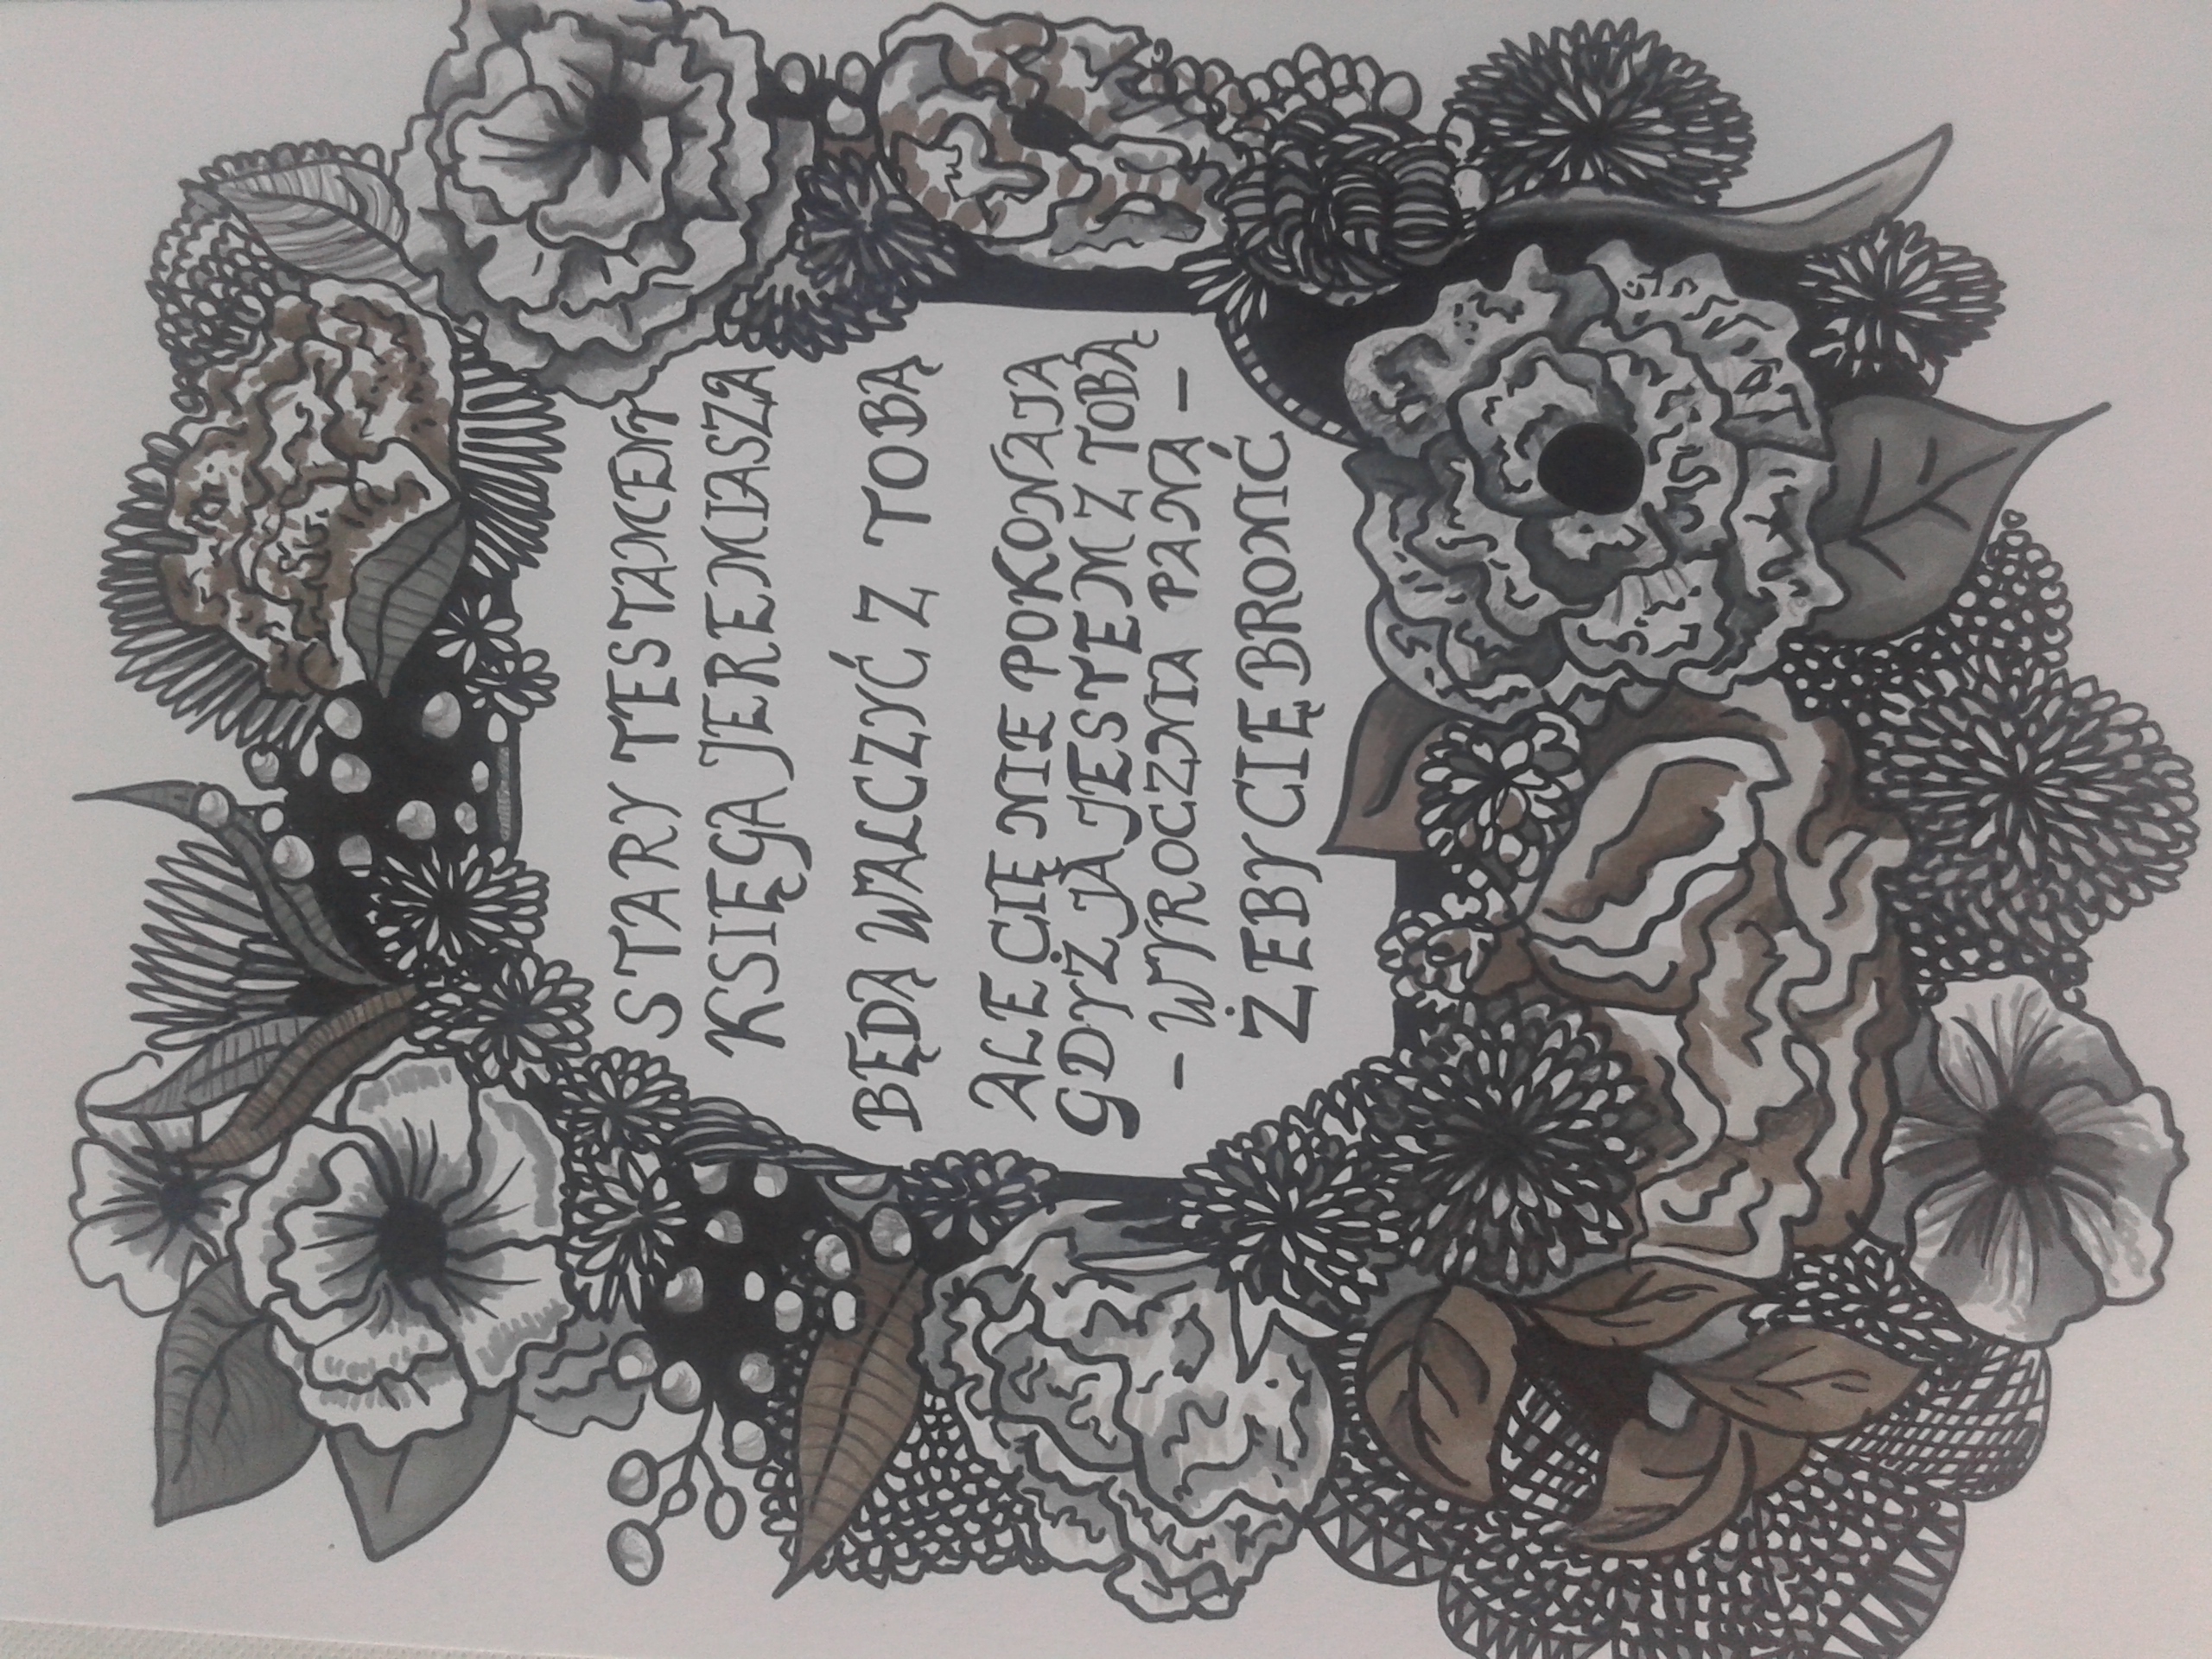 STARY TESTAMENT
KSIĘGA JEREMIASZA
BĘDĄ WALCZYĆ Z TOBĄ
ALE CIĘ NIE POKONAJĄ
GDYŻ JA JESTEM Z TOBĄ
- WYROCZNIA PANA -
ŻEBY CIĘ BRONIĆ